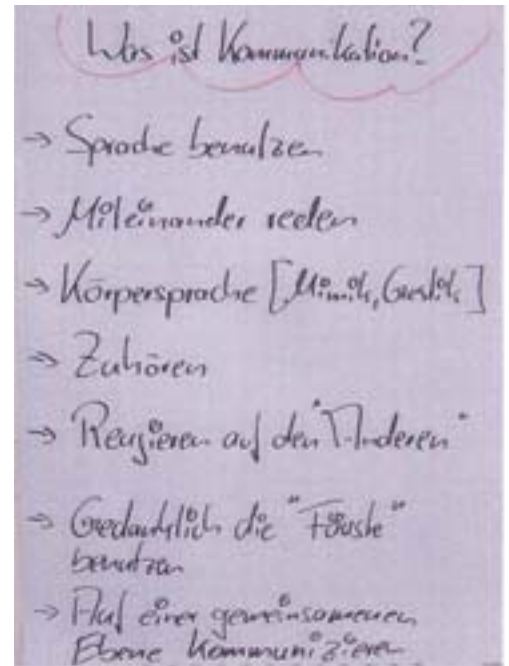 Was ist Kommunikation?
→ Sprache benutzen
→ Miteinander reden
→ Körpersprache [Mimik, Gestik]
→ Zuhören
→ Reagieren auf den "Anderen"
→ Gedanklich die "Fäuste"
benutzen
→ Auf einer gemeinsamenen
Ebene Kommunizieren